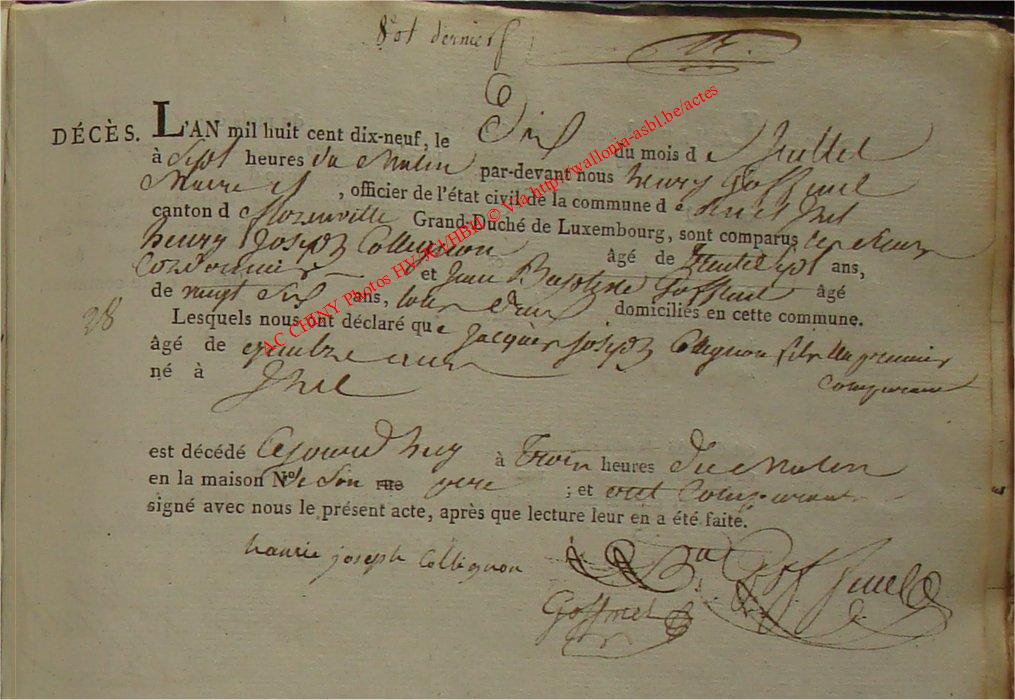 8e et dernier
DÉCÈS. L'AN mil huit cent dix-neuf, le Dix du mois d e Juillet
à Sept heures du Matin par-devant nous henry Goffinet
Maire et, officier de l'état civil de la commune d e
canton d e florenville Grand-Duché de Luxembourg, sont comparus
henry Joseph Collignon âgé de trente sept ans,
Cordonnier et Jean Baptiste Goffinet âgé
de vingt Six ans, tous deux domiciliés en cette commune.
28
Lesquels nous ont déclaré que jacques joseph Collignon fils du premier
comparant
âgé de quatre ans
né à Izel
est décédé Cejourd'huy à trois heures du Matin
en la maison No de Son rue pere ; et ont Comparans
signé avec nous le présent acte, après que lecture leur en a été faite.
hanrie joseph Collignon
J B Goffinet
Goffinet
AC CHINY Photos HV/KI/HBH © Via http://wallonia-asbl.be/actes